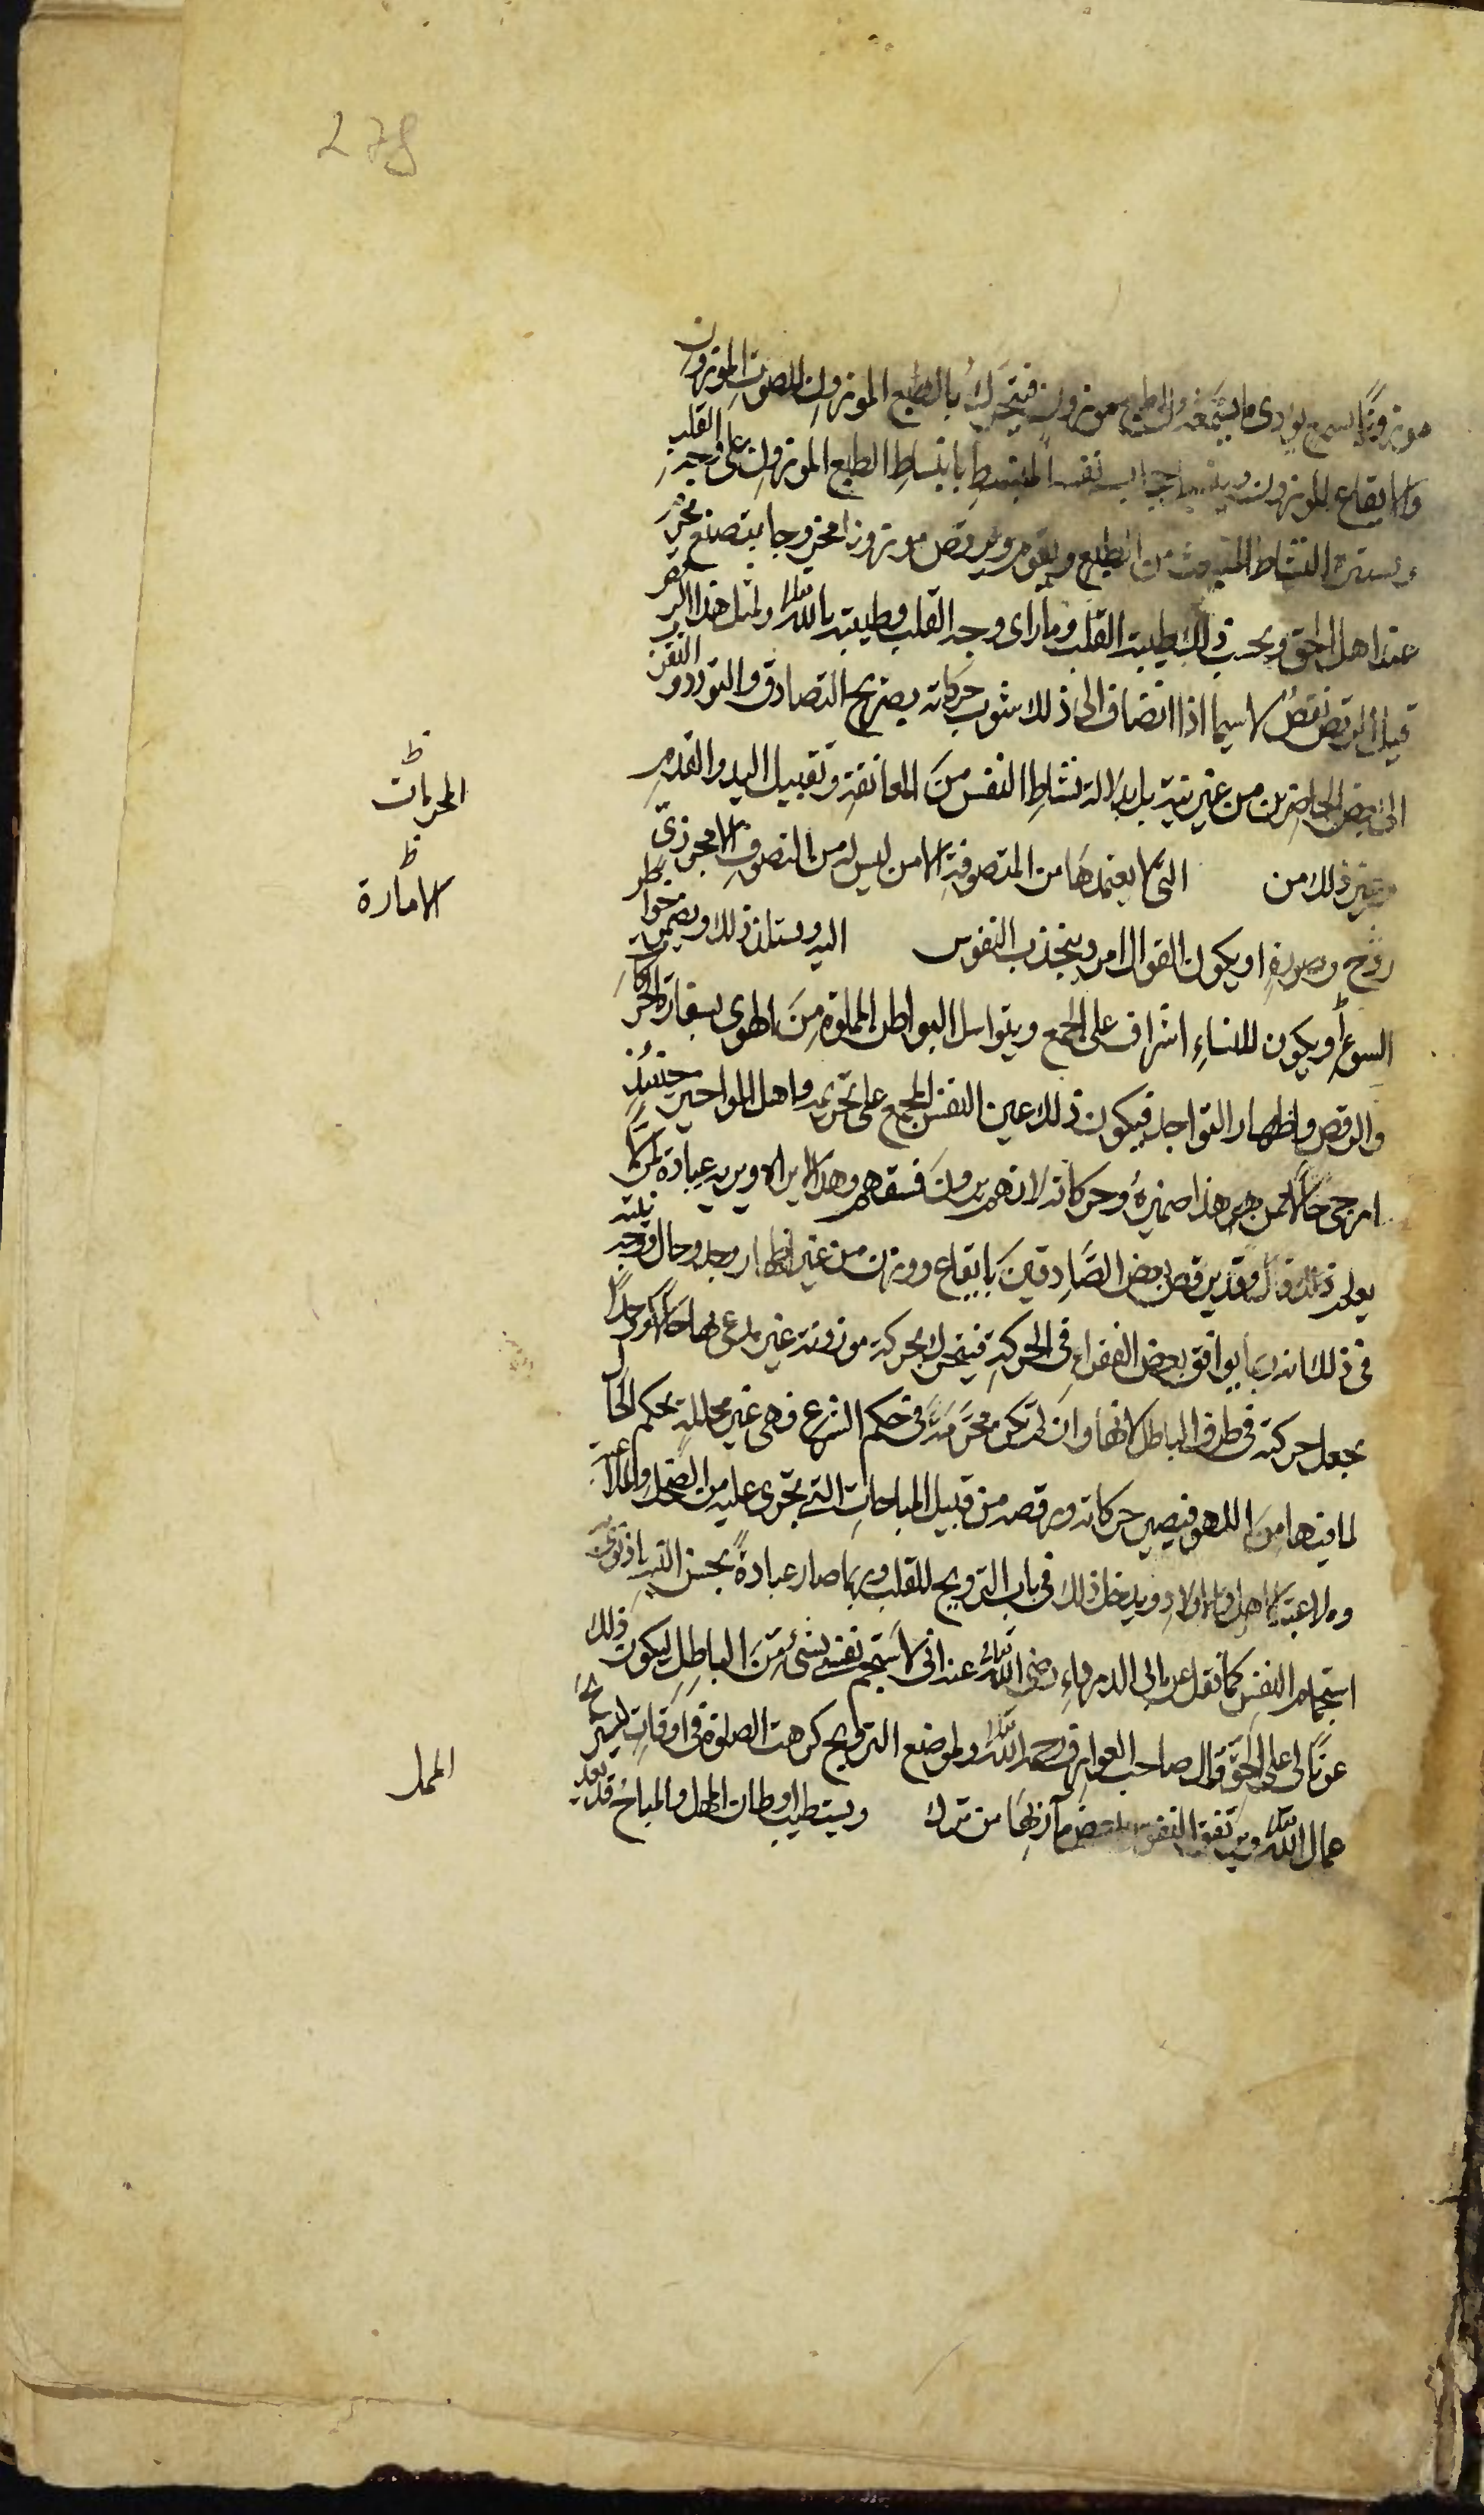 278
موزونا يسمع يودى ما يسمعه الى طبع موزون فيتحرك بالطبع الموزون للصوت الموزون
والايقاع الموزون وينسبل حجاب نفسه المنبسط بانبساط الطبع الموزون على وجه القلب
ويستفزه النشاط المنبعث من الطبع ويقوم ويرقص موزونا ممزوجا بتصنع محرم
عند اهل الحق ويحسب ذلك طيبة القلب وما راى وجه القلب وطيبته بالله تعالى ولمثل هذا الراقص
قيل الرقص نقص لا سيما اذا انضاف الى ذلك شوب حركاته بصريح التصادق والتودد والتقرب
الى بعض الحاضرين من غير نية بل بدلالة نشاط النفس من المعانقة وتقبيل اليد والقدم
وغير ذلك من التى لا يعتمدها من المتصوفة الا من ليس له من التصوف الا مجرد زى
الحركات ظ
روح وصورة او يكون القوال امرد ينجذب النفوس اليه ويستلذ ذلك ويضمر خواطر
الامارة ظ
السوء او يكون للنساء اشراف على الجمع ويتراسل البواطن المملوة من الهوى بسفارة الحركات
والرقص واظهار التواجد فيكون ذلك عين الفسق المجمع على تحريمه واهل المواخير حينئذ
ارجى حالا ممن هو هذا ضميره وحركاته لانهم يرون فسقهم وهذا لا يراه ويريه عبادة لمن لا
يعلم ذلك قال وقد يرقص بعض الصادقين بايقاع ووزن من غير اظهار وجد وحال ووجه نيته
فى ذلك انه ربما يوافق بعض الفقراء فى الحركة فيتحرك بحركة موزونة غير مدع بها حالا ووجدا
يجعل حركته فى طرف الباطل لانها وان لم تكن محرمة فى حكم الشرع فهى غير محللة بحكم الحال
لما فيها من اللهو فيصير حركاته ورقصه من قبيل المباحات التى تجرى عليه من الضحك والملاعبة
وملاعبة الاهل والاولاد ويدخل ذلك فى باب الترويح للقلب وربما صار عبادة بحسن النية اذا نوى به
استجمام النفس كما نقل عن ابى الدرداء رضى الله تعالى عنه انى لاستجم نفسى بشئ من الباطل ليكون ذلك
عونا لى على الحق قال صاحب العوارف رحمه الله تعالى ولموضع الترويح كرهت الصلوة فى اوقات ليستريح
عمال الله تعالى وترتفق النفوس ببعض مآربها من ترك ويستطيب اوطان المهل والمباح قد يعد
العمل